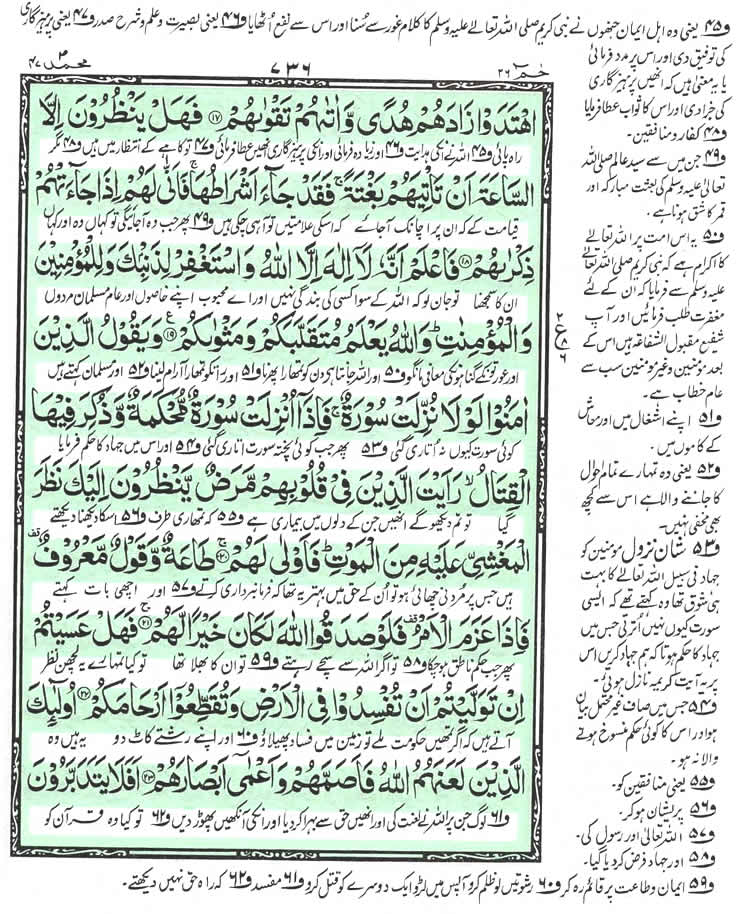 و۴۵ یعنی وہ اہل ایمان جنھوں نے نبی کریم صلی اللہ تعالےٰ علیہ وسلم کا کلام غور سے سُنا اور اس سے نفع اُٹھایا و۴۶ یعنی بصیرت و علم و شرح صدر و۴۷ یعنی پرہیزگاری
کی توفیق دی اور اس پر مدد فرمائی
یا یہ معنی ہیں کہ انھیں پرہیزگاری
کی جزا دی اور اس کا ثواب عطا فرمایا
و۴۸ کفار و منافقین۔
و۴۹ جن میں سے سید عالم صلی اللہ
تعالیٰ علیہ وسلم کی بعثت مبارکہ اور
قمر کا شق ہونا ہے۔
و۵۰ یہ اس امت پر اللہ تعالےٰ
کا اکرام ہے کہ نبی کریم صلی اللہ تعالےٰ
علیہ وسلم سے فرمایا کہ ان کے لئے
مغفرت طلب فرمائیں اور آپ
شفیع مقبول الشفاعۃ ہیں اس کے
بعد مومنین و غیر مومنین سب سے
عام خطاب ہے۔
و۵۱ اپنے اشغال میں اور معاش
کے کاموں میں۔
و۵۲ یعنی وہ تمہارے تمام احوال
کا جاننے والا ہے اس سے کچھ
بھی مخفی نہیں۔
و۵۳ شان نزول مومنین کو
جہاد فی سبیل اللہ تعالےٰ کا بہت
ہی شوق تھا وہ کہتے تھے کہ ایسی
سورت کیوں نہیں اُترتی جس میں
جہاد کا حکم ہو تا کہ ہم جہاد کریں اس
پر یہ آیت کریمہ نازل ہوئی۔
و۵۴ جس میں صاف غیر محتمل بیان
ہو اور اس کا کوئی حکم منسوخ ہونے
والا نہ ہو۔
و۵۵ یعنی منافقین کو۔
و۵۶ پریشان ہو کر۔
و۵۷ اللہ تعالیٰ اور رسول کی۔
و۵۸ اور جہاد فرض کر دیا گیا۔
حٰمٓ ۲۶ ۷۳۶ محمد ۴۷
اهْتَدَوْا زَادَهُمْ هُدًى وَّاٰتٰىهُمْ تَقْوٰىهُمْ ﴿۱۷﴾ فَهَلْ يَنْظُرُوْنَ اِلَّا
راہ پائی و۴۵ اللہ نے انکی ہدایت و۴۶ اور زیادہ فرمائی اور انکی پرہیزگاری انھیں عطا فرمائی و۴۷ تو کاہے کے انتظار میں ہیں و۴۸ مگر
السَّاعَةَ اَنْ تَاْتِيَهُمْ بَغْتَةً ۚ فَقَدْ جَآءَ اَشْرَاطُهَا ۚ فَاَنّٰى لَهُمْ اِذَا جَآءَتْهُمْ
قیامت کے کہ ان پر اچانک آجائے کہ اسکی علامتیں تو آ ہی چکی ہیں و۴۹ پھر جب وہ آجائیگی تو کہاں وہ اور کہاں
ذِكْرٰىهُمْ ﴿۱۸﴾ فَاعْلَمْ اَنَّهٗ لَآ اِلٰهَ اِلَّا اللّٰهُ وَاسْتَغْفِرْ لِذَنْۢبِكَ وَلِلْمُؤْمِنِيْنَ
ان کا سمجھنا تو جان لو کہ اللہ کے سوا کسی کی بندگی نہیں اور اے محبوب اپنے خاصوں اور عام مسلمان مردوں
وَالْمُؤْمِنٰتِ ؕ وَاللّٰهُ يَعْلَمُ مُتَقَلَّبَكُمْ وَمَثْوٰىكُمْ ﴿۱۹﴾ وَيَقُوْلُ الَّذِيْنَ
اور عورتوں کے گناہوں کی معافی مانگو و۵۰ اور اللہ جانتا ہے دن کو تمھارا پھرنا و۵۱ اور رات کو تمھارا آرام لینا و۵۲ اور مسلمان کہتے ہیں
اٰمَنُوْا لَوْلَا نُزِّلَتْ سُوْرَةٌ ۚ فَاِذَآ اُنْزِلَتْ سُوْرَةٌ مُّحْكَمَةٌ وَّذُكِرَ فِيْهَا
کوئی سورت کیوں نہ اُتاری گئی و۵۳ پھر جب کوئی پختہ سورت اتاری گئی و۵۴ اور اس میں جہاد کا حکم فرمایا
الْقِتَالُ ۙ رَاَيْتَ الَّذِيْنَ فِيْ قُلُوْبِهِمْ مَّرَضٌ يَّنْظُرُوْنَ اِلَيْكَ نَظَرَ
گیا تو تم دیکھو گے انھیں جن کے دلوں میں بیماری ہے و۵۵ کہ تمھاری طرف و۵۶ اسکا دیکھنا دیکھتے
الْمَغْشِيِّ عَلَيْهِ مِنَ الْمَوْتِ ؕ فَاَوْلٰى لَهُمْ ﴿۲۰﴾ طَاعَةٌ وَّقَوْلٌ مَّعْرُوْفٌ
ہیں جس پر مردنی چھائی ہو تو ان کے حق میں بہتر یہ تھا کہ فرمانبرداری کرتے و۵۷ اور اچھی بات کہتے
فَاِذَا عَزَمَ الْاَمْرُ فَلَوْ صَدَقُوا اللّٰهَ لَكَانَ خَيْرًا لَّهُمْ ﴿۲۱﴾ فَهَلْ عَسَيْتُمْ
پھر جب حکم ناطق ہو چکا و۵۸ تو اگر اللہ سے سچے رہتے و۵۹ تو ان کا بھلا تھا تو کیا تمہارے یہ لچھن نظر
اِنْ تَوَلَّيْتُمْ اَنْ تُفْسِدُوْا فِي الْاَرْضِ وَتُقَطِّعُوْٓا اَرْحَامَكُمْ ﴿۲۲﴾ اُولٰٓئِكَ
آتے ہیں کہ اگر تمھیں حکومت ملے تو زمین میں فساد پھیلاؤ و۶۰ اور اپنے رشتے کاٹ دو یہ ہیں وہ
الَّذِيْنَ لَعَنَهُمُ اللّٰهُ فَاَصَمَّهُمْ وَاَعْمٰٓى اَبْصَارَهُمْ ﴿۲۳﴾ اَفَلَا يَتَدَبَّرُوْنَ
و۶۱ لوگ جن پر اللہ نے لعنت کی اور انھیں حق سے بہرا کر دیا اور انکی آنکھیں پھوڑ دیں و۶۲ تو کیا وہ قرآن کو
و۵۹ ایمان و طاعت پر قائم رہ کر و۶۰ رشوتیں لو ظلم کرو آپس میں لڑو ایک دوسرے کو قتل کرو و۶۱ مفسد و۶۲ کہ راہ حق نہیں دیکھتے۔